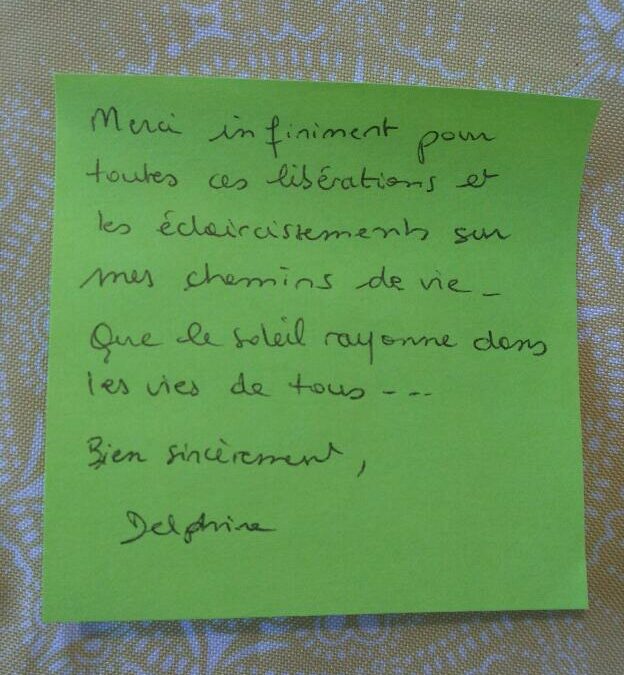 Merci infiniment pour
toutes ces libérations et
les éclaircissements sur
mes chemins de vie_
Que le soleil rayonne dans
les vies de tous---
Bien sincèrement,
Delphine